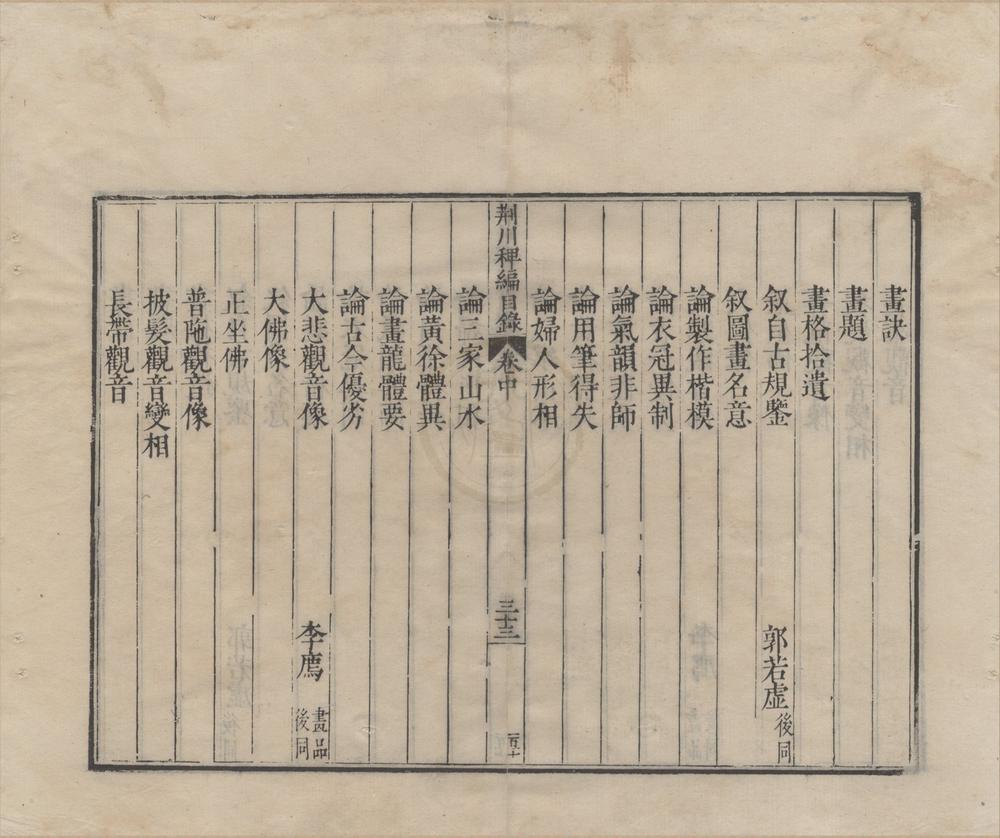 畫訣
畫題
畫格拾遺
叙自古規鑒 郭若虛 後同
叙圖畫名意
論製作楷模
論衣冠異制
論氣韻非師
論用筆得失
論婦人形相
荆川稗編目錄 卷中 三十三
論三家山水
論黃徐體異
論畫龍體要
論古今優劣
大悲觀音像 李廌 畫品後同
大佛像
正坐佛
普陁觀音像
披髮觀音變相
長帶觀音